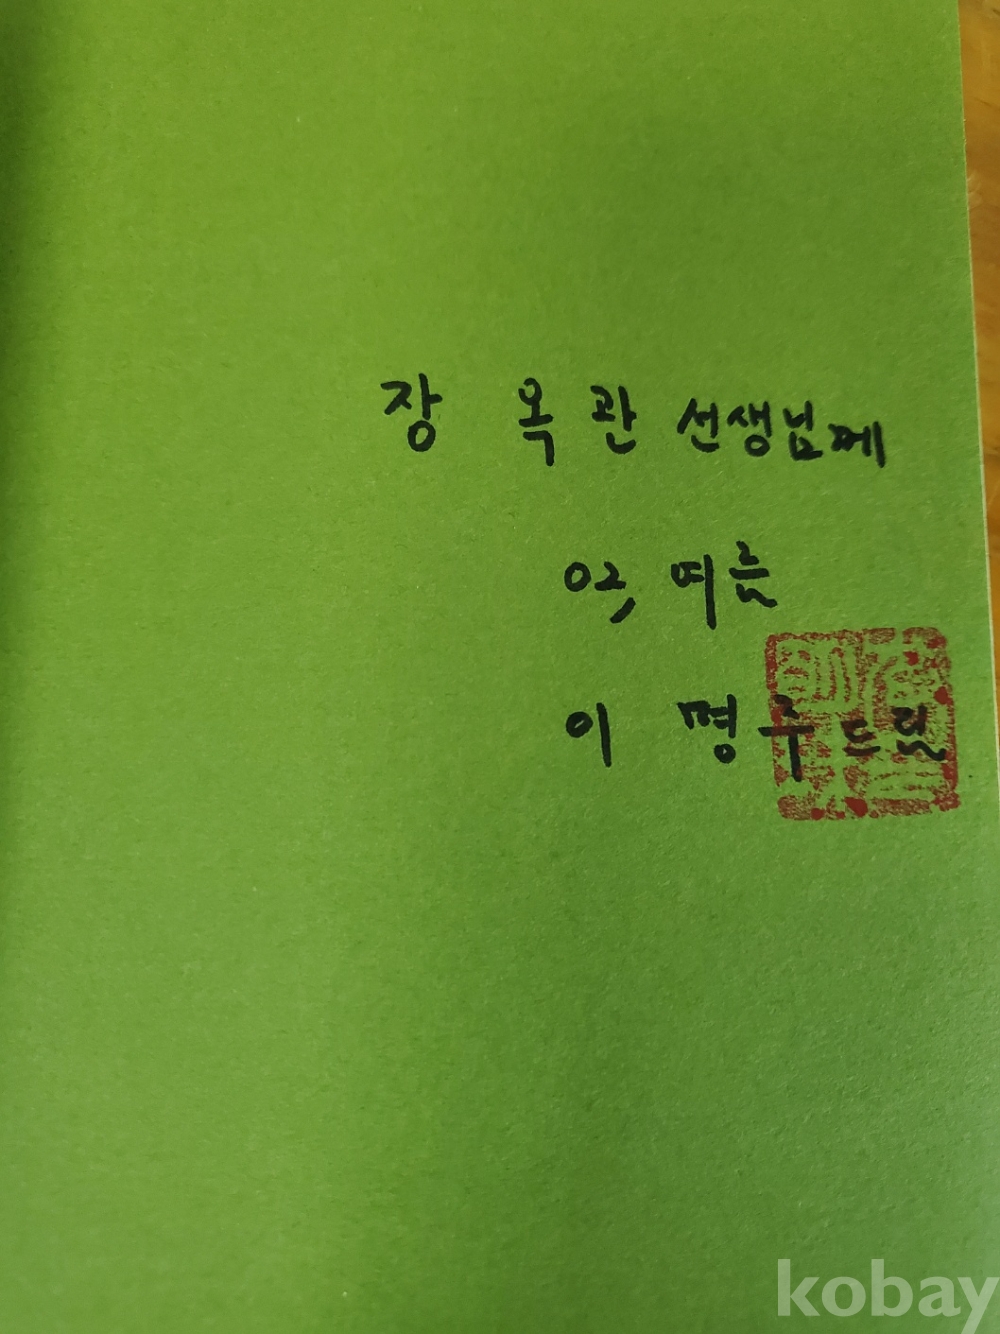 장 옥 관 선생님께
02, 여름
이 명 주 드림
kobay